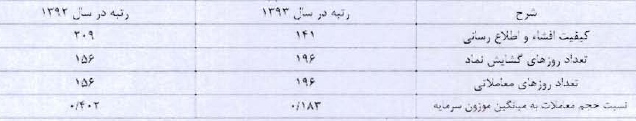 شرح رتبه در سال ۱۳۹۳ رتبه در سال ۱۳۹۲
کیفیت افشاء و اطلاع رسانی ۱۴۱ ۲۰۹
تعداد روزهای گشایش نماد ۱۹۶ ۱۵۶
تعداد روزهای معاملاتی ۱۹۶ ۱۵۶
نسبت حجم معاملات به میانگین موزون سرمایه ۰/۱۸۳ ۰/۴۰۲